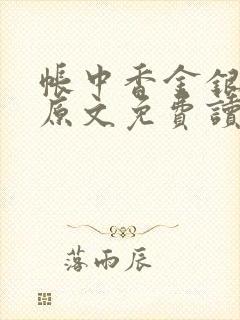 帳中香金銀
原文免費讀
落雨辰